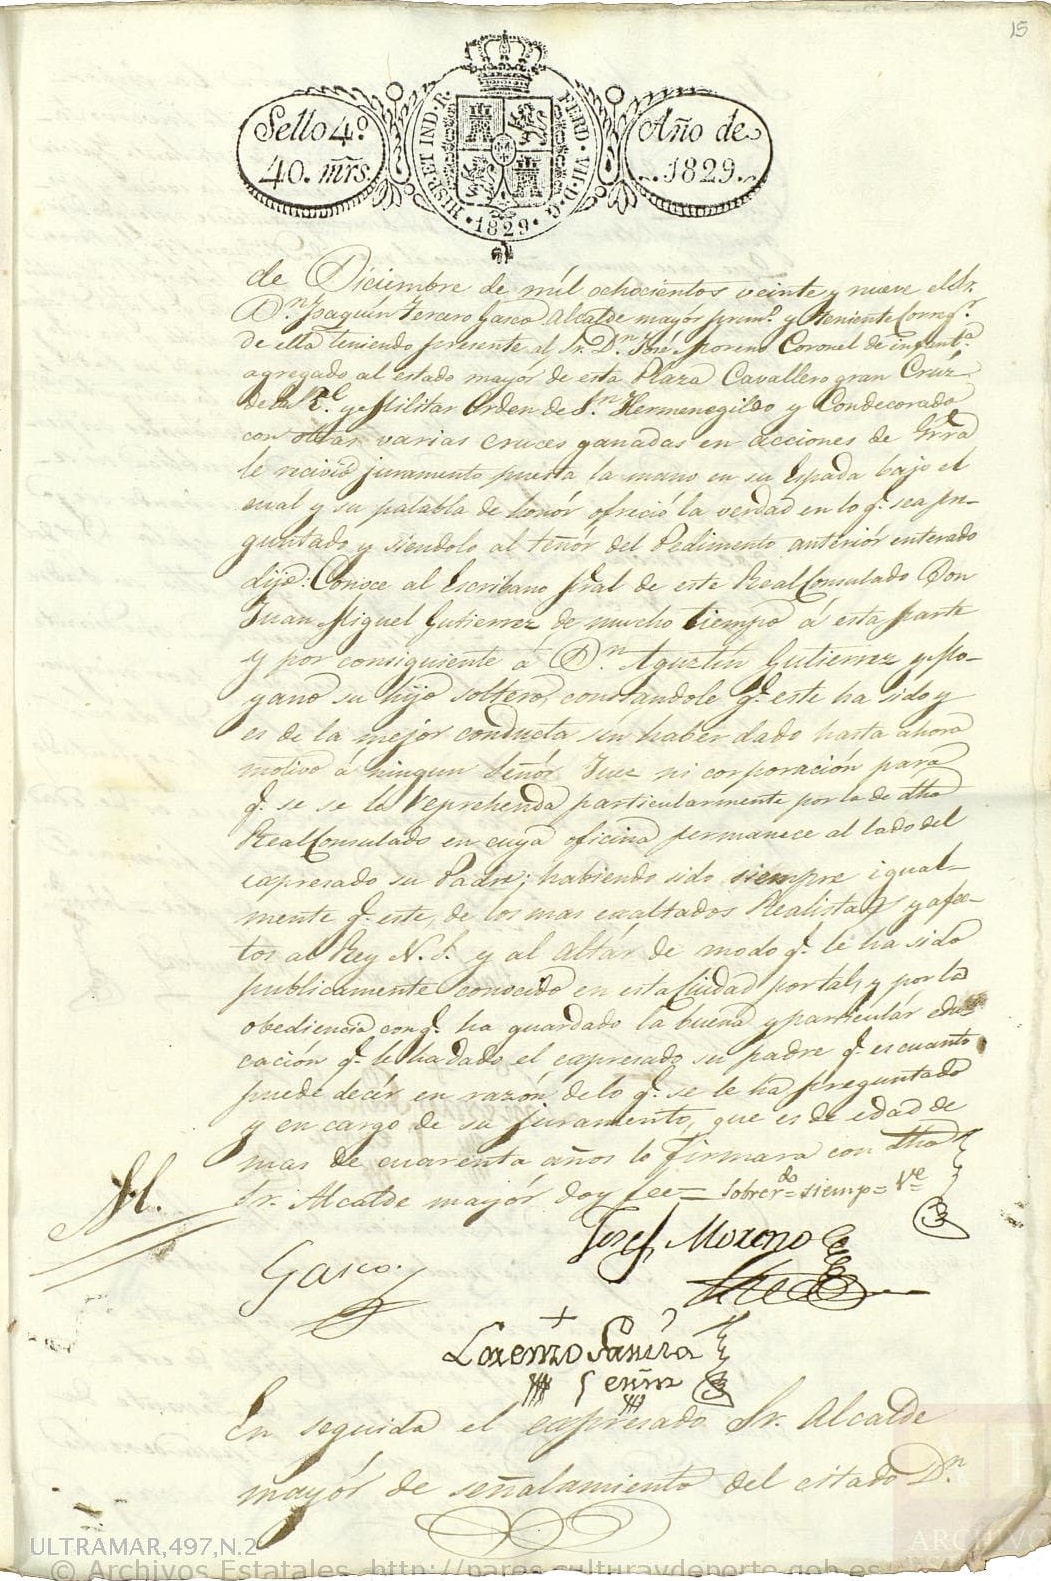 15
Sello 4º
40. mrs.
HISP. ET IND. R.
FERD. VII. D. G.
1829
Año de
1829.
de Diciembre de mil ochocientos veinte y nueve el Sr.
Dn. Joaquín Tercero Gasco Alcalde mayor prim.º y Teniente Correg.r
de ella teniendo presente al Sr. Dn. José Moreno Coronel de infant.a
agregado al estado mayór de esta Plaza Cavallero gran Cruz
de la Rl. y Militar Orden de Sn. Hermenegildo y Condecorado
con otras varias cruces ganadas en acciones de Grra
le recivió juramento puesta la mano en su Espada bajo el
cual y su palabla de honór ofreció la verdad en lo q.e sea pre-
guntado y siendolo al tenór del Pedimento anteriór enterado
dijo: Conoce al Escribano pral de este Real Consulado Don
Juan Miguel Gutierrez de mucho tiempo á esta parte
y por consiguiente á Dn. Agustin Gutierrez y Mo-
yano su hijo soltero, constandole q.e este ha sido y
es de la mejor conducta sin haber dado hasta ahora
motivo á ningun Señór Juez ni corporación para
q.e se se le reprehenda particularmente por la de dho
Real Consulado en cuya oficina permanece al lado del
expresado su Padre; habiendo sido siempre igual-
mente q.e este, de los mas exaltados Realistas y afec-
tos al Rey N. S. y al Altár de modo q.e le ha sido
publicamente conocido en esta Ciudad por tal, y por la
obediencia con q.e ha guardado la buena y particulár edu-
cación q.e le ha dado el expresado su padre q.e es cuanto
puede decír en razón de lo q.e se le ha preguntado
y en cargo de su juramento, que es de edad de
mas de cuarenta años lo firmara con dho
Sr. Alcalde mayór doy fee = sobrer.do = siemp = Ve
Josef Moreno
Gasco.
Lorenzo
En seguida el expresado Sr. Alcalde
mayór de señalamiento del citado Dn.
ULTRAMAR,497,N.2
ARCHIVO
© Archivos Estatales, http://pares.culturaydeporte.gob.es